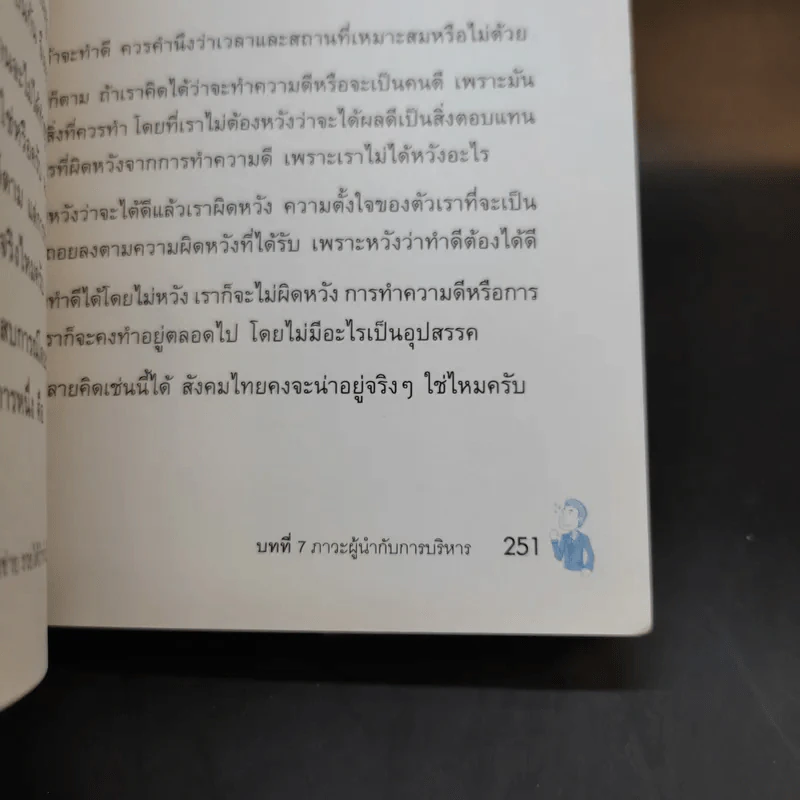 จะทำดี ควรคำนึงว่าเวลาและสถานที่เหมาะสมหรือไม่ด้วย
ก็ตาม ถ้าเราคิดได้ว่าจะทำความดีหรือจะเป็นคนดี เพราะมัน
สิ่งที่ควรทำ โดยที่เราไม่ต้องหวังว่าจะได้ผลดีเป็นสิ่งตอบแทน
ที่ผิดหวังจากการทำความดี เพราะเราไม่ได้หวังอะไร
หวังว่าจะได้ดีแล้วเราผิดหวัง ความตั้งใจของตัวเราที่จะเป็น
ถอยลงตามความผิดหวังที่ได้รับ เพราะหวังว่าทำดีต้องได้ดี
ทำดีได้โดยไม่หวัง เราก็จะไม่ผิดหวัง การทำความดีหรือการ
ราก็จะคงทำอยู่ตลอดไป โดยไม่มีอะไรเป็นอุปสรรค
ลายคิดเช่นนี้ได้ สังคมไทยคงจะน่าอยู่จริงๆ ใช่ไหมครับ
บทที่ 7 ภาวะผู้นำกับการบริหาร 251